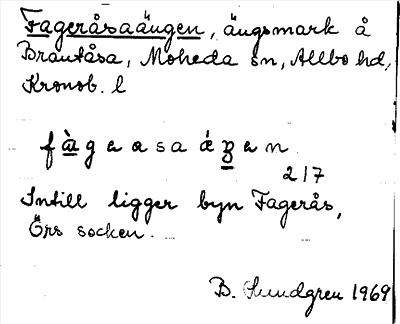 Fageråsaängen, ängsmark å
Brantåsa, Moheda sn, Allbo hd,
Kronob. l
217
Intill ligger byn Fagerås,
Örs socken.
B. Sundgren 1969